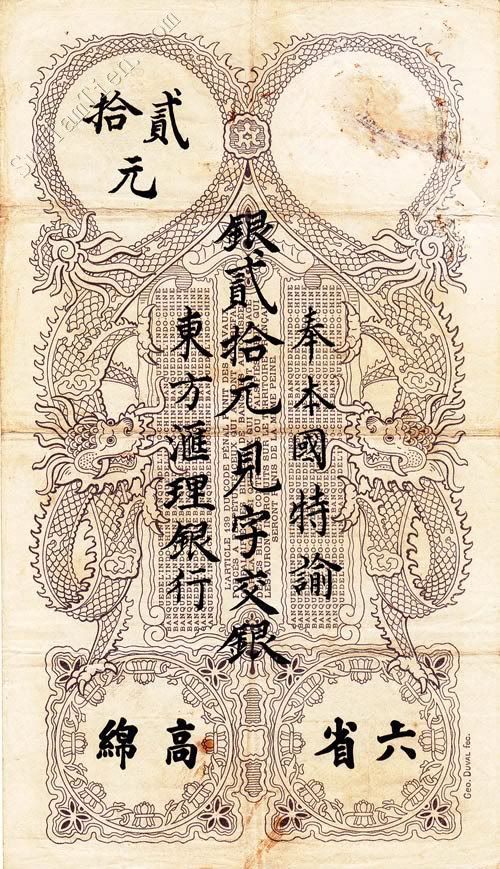 貳拾元
奉本國特諭
銀貳拾元見字交銀
東方滙理銀行
BANQUE DE L'INDOCHINE
L'ARTICLE 139 DU
SERONT DE LA MEME PEINE
六省
高綿
GEO. DUVAL fec.